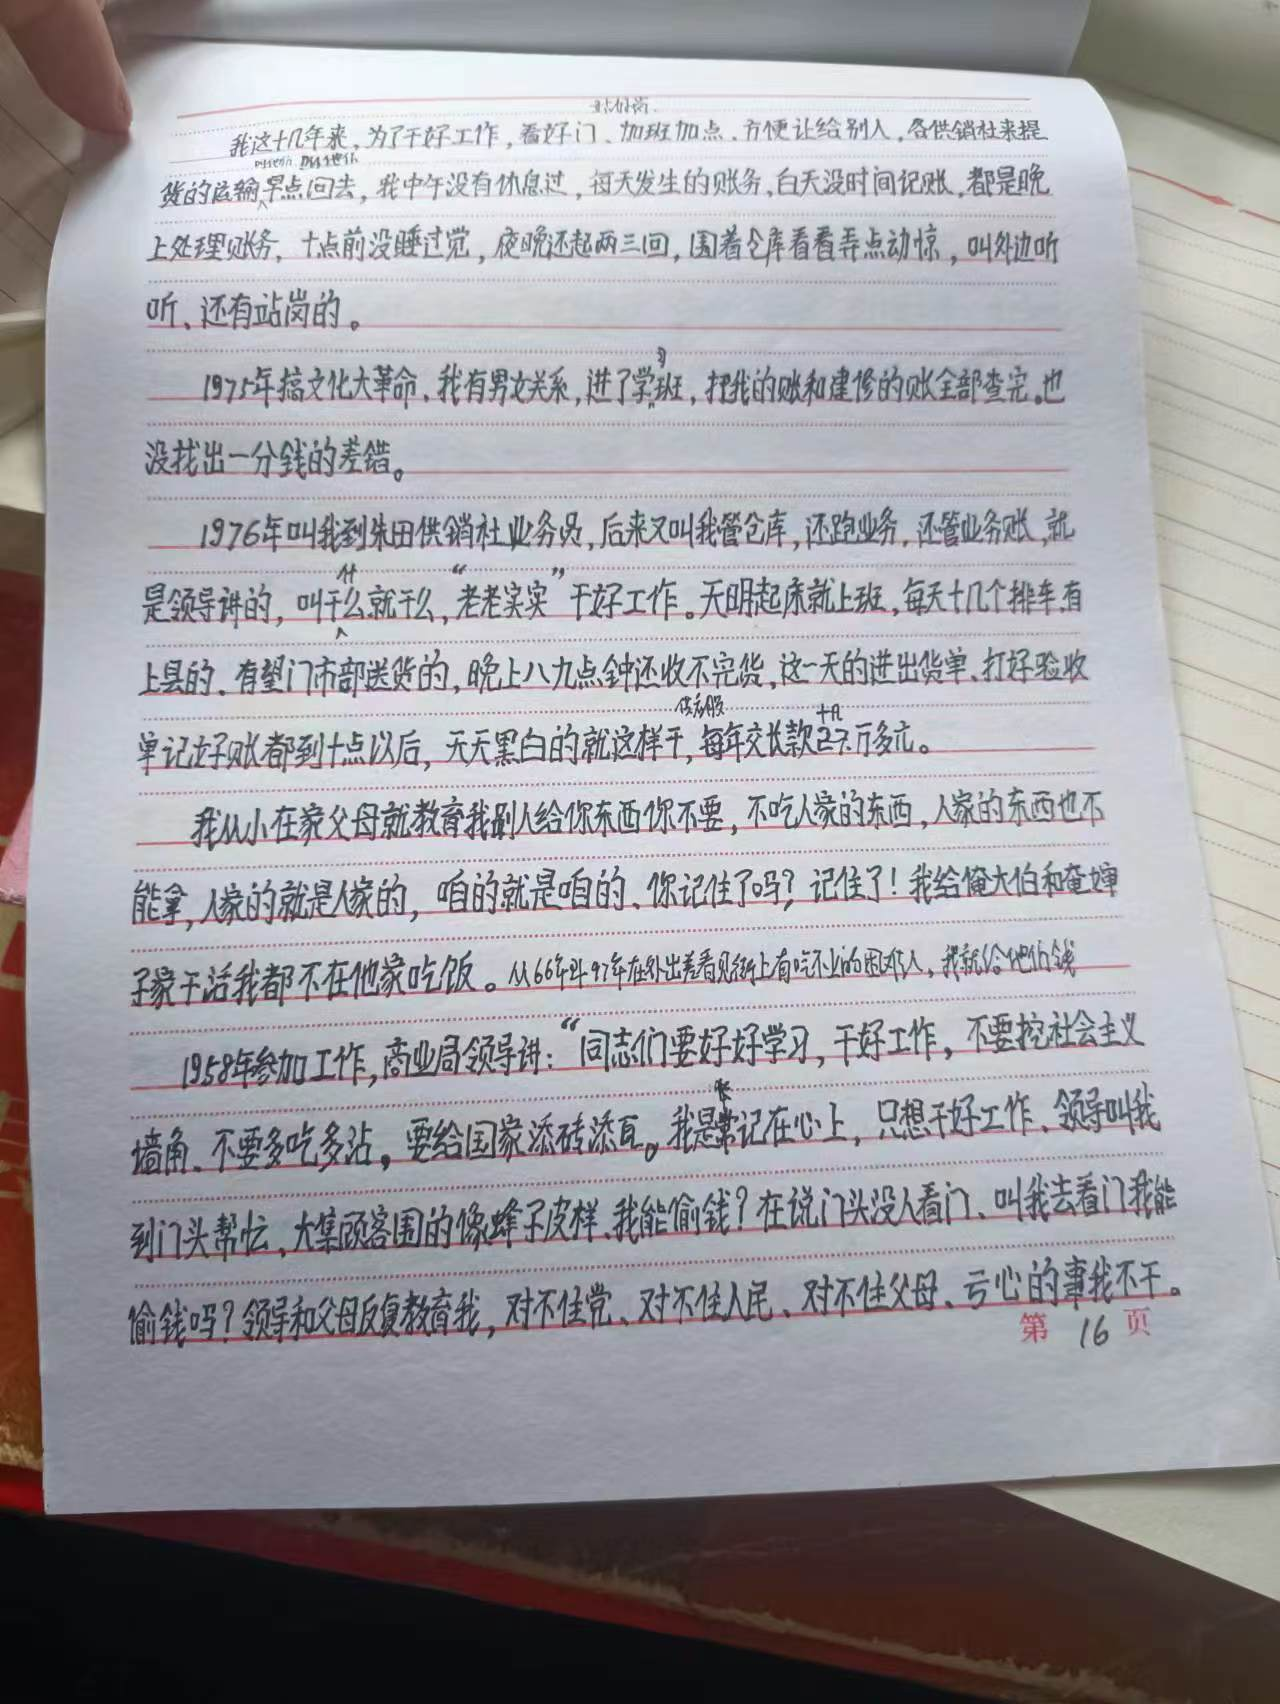 站好岗
我这十几年来，为了干好工作，看好门、加班加点、方便让给别人，各供销社来提
叫他们
货的运输早点回去，我中午没有休息过，每天发生的账务，白天没时间记账，都是晚
上处理账务，十点前没睡过觉，夜晚还起两三回，围着仓库看看弄点动惊，叫外边听
听、还有站岗的。
习
1975年搞文化大革命、我有男女关系，进了学班，把我的账和建修的账全部查完。也
没找出一分钱的差错。
1976年叫我到朱田供销社业务员，后来又叫我管仓库，还跑业务，还管业务账，就
什
是领导讲的，叫干么就干么，“老老实实”干好工作。天明起床就上班，每天十几个排车、有
上县的、有望门市部送货的，晚上八九点钟还收不完货，这一天的进出货单、打好验收
十几
单记好账都到十点以后，天天黑白的就这样干，每年交长款万多元。
我从小在家父母就教育我别人给你东西你不要，不吃人家的东西，人家的东西也不
能拿，人家的就是人家的，咱的就是咱的、你记住了吗？记住了！我给俺大伯和俺婶
子家干活我都不在他家吃饭。从66年到97年在外出差看见街上有吃不上的困难人，我就给他们钱
1958年参加工作，商业局领导讲：“同志们要好好学习，干好工作，不要挖社会主义
墙角、不要多吃多沾，要给国家添砖添瓦。我是常记在心上，只想干好工作、领导叫我
到门头帮忙、大集顾客围的像蜂子皮样、我能偷钱？在说门头没人看门、叫我去看门我能
偷钱吗？领导和父母反复教育我，对不住党、对不住人民、对不住父母、亏心的事我不干。
第 16 页